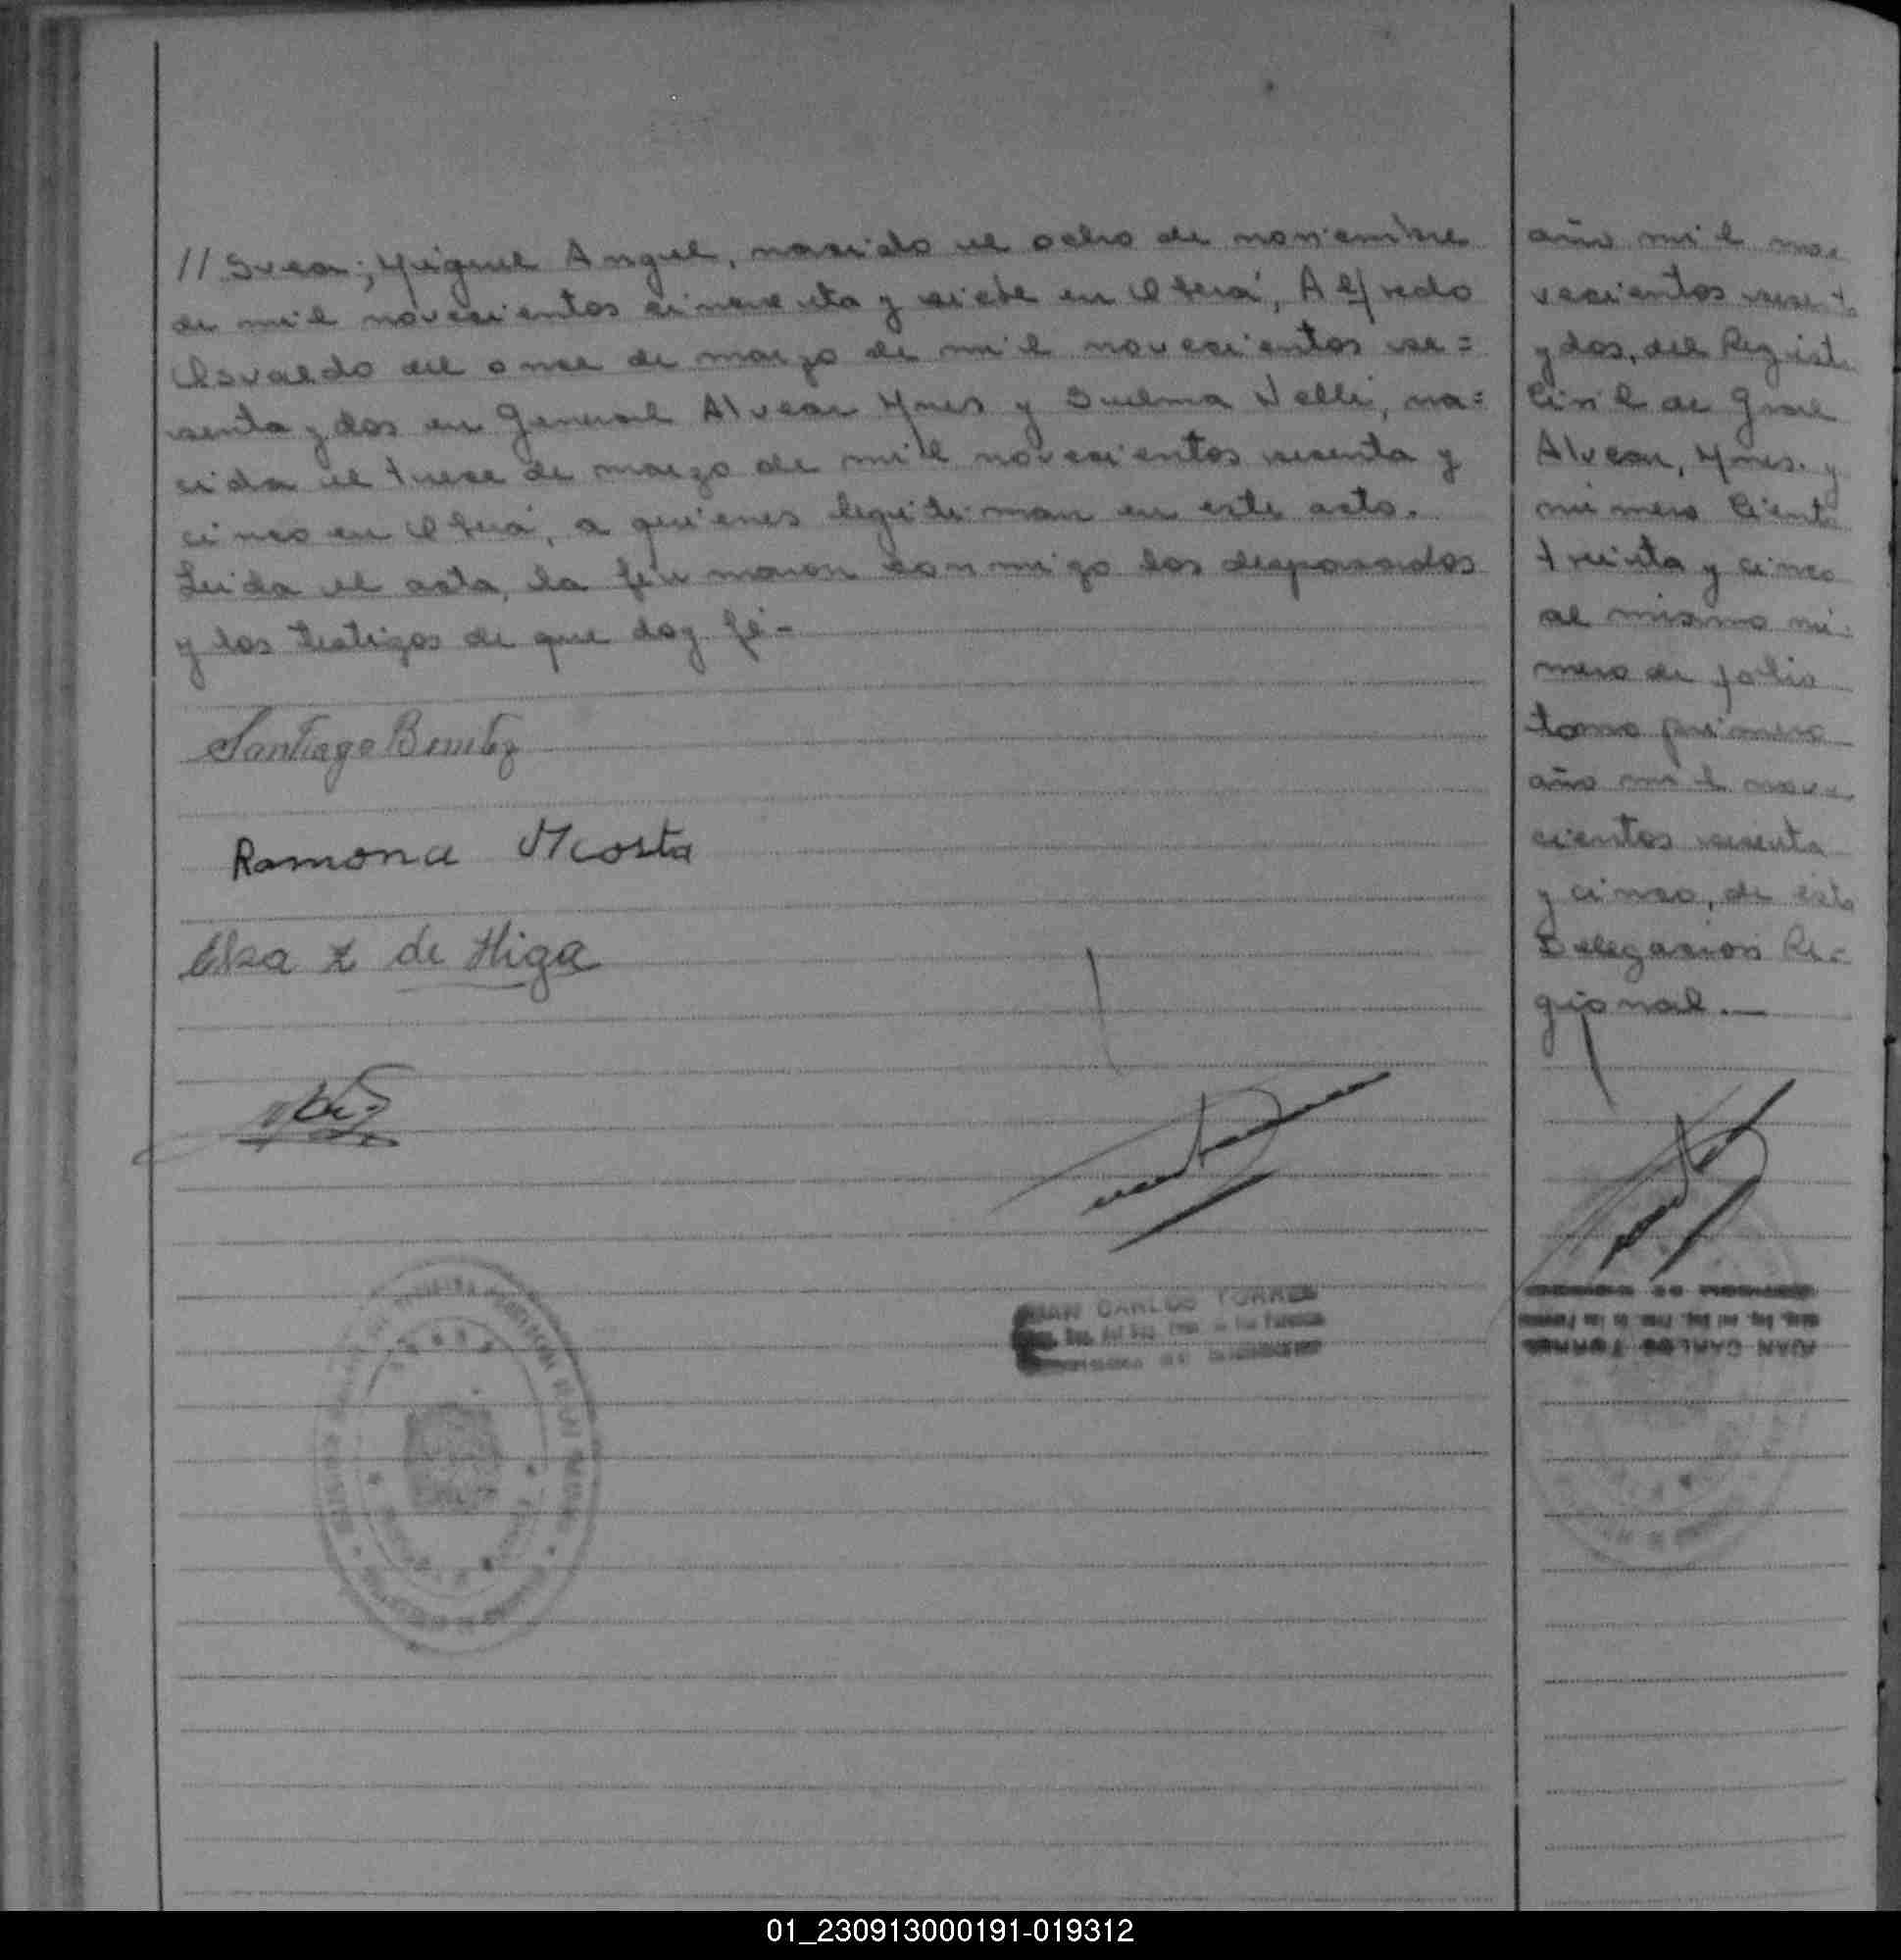 Miguel Angel, nacido el ocho de noviembre
de mil novecientos cincuenta y siete en Oberá, Alfredo
Osvaldo el once de marzo de mil novecientos se=
senta y dos en General Alvear Mnes y Suelma Nelli, na=
cida el trece de marzo de mil novecientos sesenta y
cinco en Oberá, a quienes legitiman en este acto.
Leida el acta, la firmaron conmigo los desposados
y los testigos de que doy fé-
Santiago Benitez
Ramona Acosta
Elsa Z de Higa
JUAN CARLOS TORRES
año mil no=
vecientos sesenta
y dos, del Registro
Civil de Gral
Alvear, Mnes. y
número Ciento
treinta y cinco
al mismo nú=
mero de folio
tomo primero
año mil nove
cientos sesenta
y cinco, de esta
Delegación Re=
gional.—
JUAN CARLOS TORRES
01_230913000191-019312